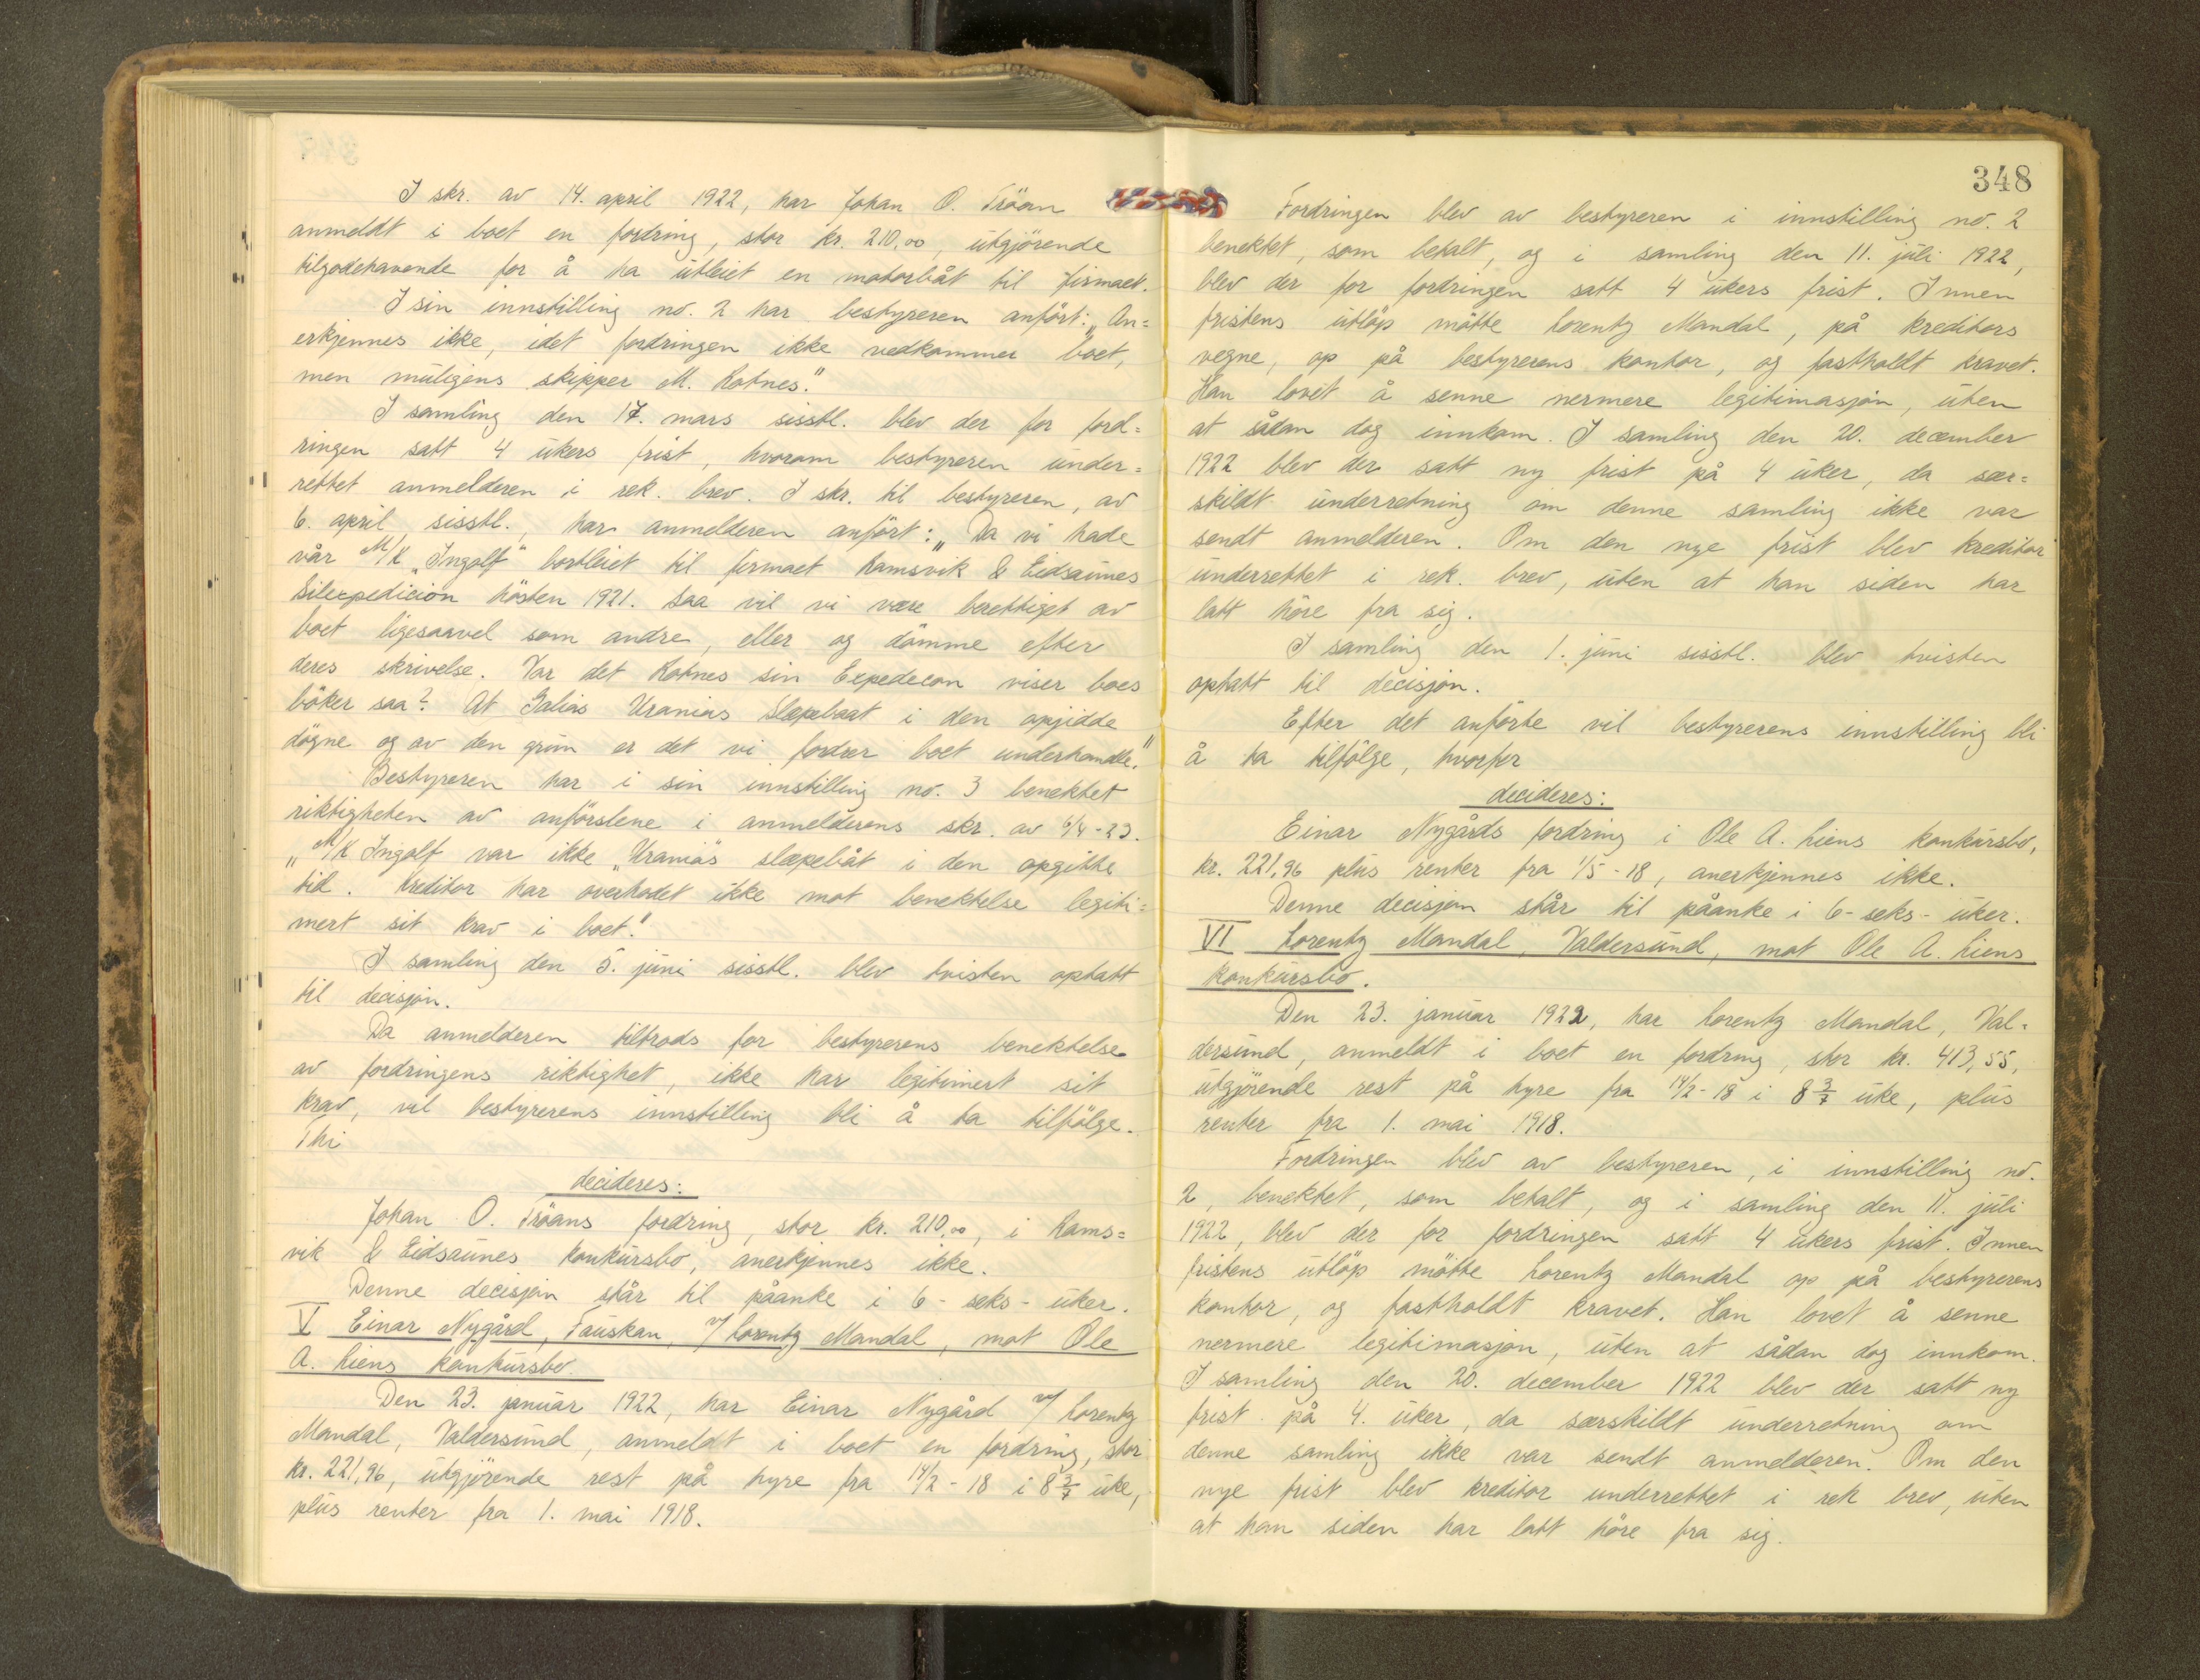 I skr. av 14. april 1922, har Johan O. Tröan
anmeldt i boet en fordring, stor kr. 210,00, utgjörende
tilgodehavende for å ha utleiet en motorbåt til firmaet.
I sin innstilling no. 2 har bestyreren anfört: „An=
erkjennes ikke, idet fordringen ikke vedkommer boet,
men muligens skipper M. Kotnes."
I samling den 17. mars sisstl. blev der for ford=
ringen satt 4 ukers frist, hvorom bestyreren under=
rettet anmelderen i rek. brev. I skr. til bestyreren, av
6. april sisstl., har anmelderen anfört: „Da vi hade
vår M/K „Ingolf" bortleiet til firmaet Ramsvik & Eidsaunes
Silexpedicion hösten 1921. saa vil vi være berettiget av
boet ligesaavel som andre, eller og dömme efter
deres skrivelse. Var det Kotnes sin Expedecon viser boes
böker saa? At Galias Uranias Slæpebaat i den opjidde
dögne og av den grun er det vi fordrer boet underhandle."
Bestyreren har i sin innstilling no. 3 benektet
riktigheten av anförslene i anmelderens skr. av 6/4-23.
„M/K Ingolf var ikke „Uranias slæpebåt i den opgitte
tid. Kreditor har overhodet ikke mot benektelse legiti=
mert sit krav i boet."
I samling den 5. juni sisstl. blev tvisten optatt
til decisjon.
Da anmelderen tiltrods for bestyrerens benektelse
av fordringens riktighet, ikke har legitimert sit
krav, vil bestyrerens innstilling bli å ta tilfölge.
Thi
decideres:
Johan O. Tröans fordring, stor kr. 210,00, i Rams=
vik & Eidsaunes konkursbo, anerkjennes ikke.
Denne decisjon står til påanke i 6- seks- uker.
V Einar Nygård, Fauskan, v/ Lorentz Mandal, mot Ole
A. Liens konkursbo.
Den 23. januar 1922, har Einar Nygård v/ Lorentz
Mandal, Valdersund, anmeldt i boet en fordring, stor
kr. 221,96, utgjörende rest på hyre fra 14/2-18 i 8 3/7 uke,
plus renter fra 1. mai 1918.
348
Fordringen blev av bestyreren i innstilling no. 2
benektet, som betalt, og i samling den 11. juli 1922,
blev der for fordringen satt 4 ukers frist. Innen
fristens utlöp mötte Lorentz Mandal, på kreditors
vegne, op på bestyrerens kontor, og fastholdt kravet.
Han lovet å senne nermere legitimasjon, uten
at sådan dog innkom. I samling den 20. december
1922 blev der satt ny frist på 4 uker, da sær=
skildt underretning om denne samling ikke var
sendt anmelderen. Om den nye frist blev kreditor
underrettet i rek. brev, uten at han siden har
latt höre fra sig.
I samling den 1. juni sisstl. blev tvisten
optatt til decisjon.
Efter det anförte vil bestyrerens innstilling bli
å ta tilfölge, hvorfor
decideres:
Einar Nygårds fordring i Ole A. Liens konkursbo,
kr. 221,96 plus renter fra 1/5-18, anerkjennes ikke.
Denne decisjon står til påanke i 6- seks- uker.
VI Lorentz Mandal, Valdersund, mot Ole A. Liens
konkursbo.
Den 23. januar 1922, har Lorentz Mandal, Val-
dersund, anmeldt i boet en fordring, stor kr. 413,55,
utgjörende rest på hyre fra 14/2-18 i 8 3/7 uke, plus
renter fra 1. mai 1918.
Fordringen blev av bestyreren, i innstilling no.
2, benektet, som betalt, og i samling den 11. juli
1922, blev der for fordringen satt 4 ukers frist. Innen
fristens utlöp mötte Lorentz Mandal op på bestyrerens
kontor, og fastholdt kravet. Han lovet å senne
nermere legitimasjon, uten at sådan dog innkom.
I samling den 20. december 1922 blev der satt ny
frist på 4. uker, da særskildt underretning om
denne samling ikke var sendt anmelderen. Om den
nye frist blev kreditor underrettet i rek brev, uten
at han siden har latt höre fra sig.